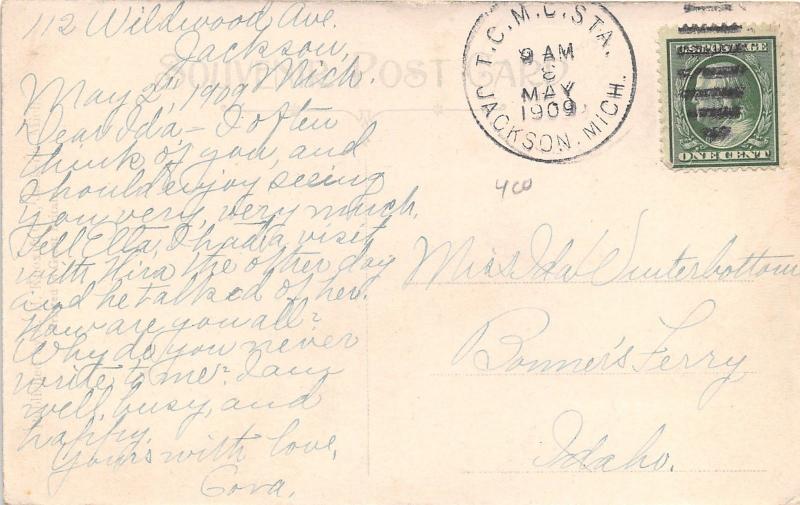 112 Wildwood Ave.
Jackson,
Mich.
May 2, 1909
Dear Ida – I often
think of you, and
should enjoy seeing
you very, very much.
Tell Ella, I had a visit
with Hira the other day
and he talked of her.
How are you all?
Why do you never
write to me? I am
well, busy, and
happy.
Yours with love,
Cora.
POST CARD
T.C.M.D. STA.
9 AM
8
MAY
1909
JACKSON, MICH.
U.S. POSTAGE
ONE CENT
400
Miss Ida Winterbottom
Bonner's Ferry
Idaho.